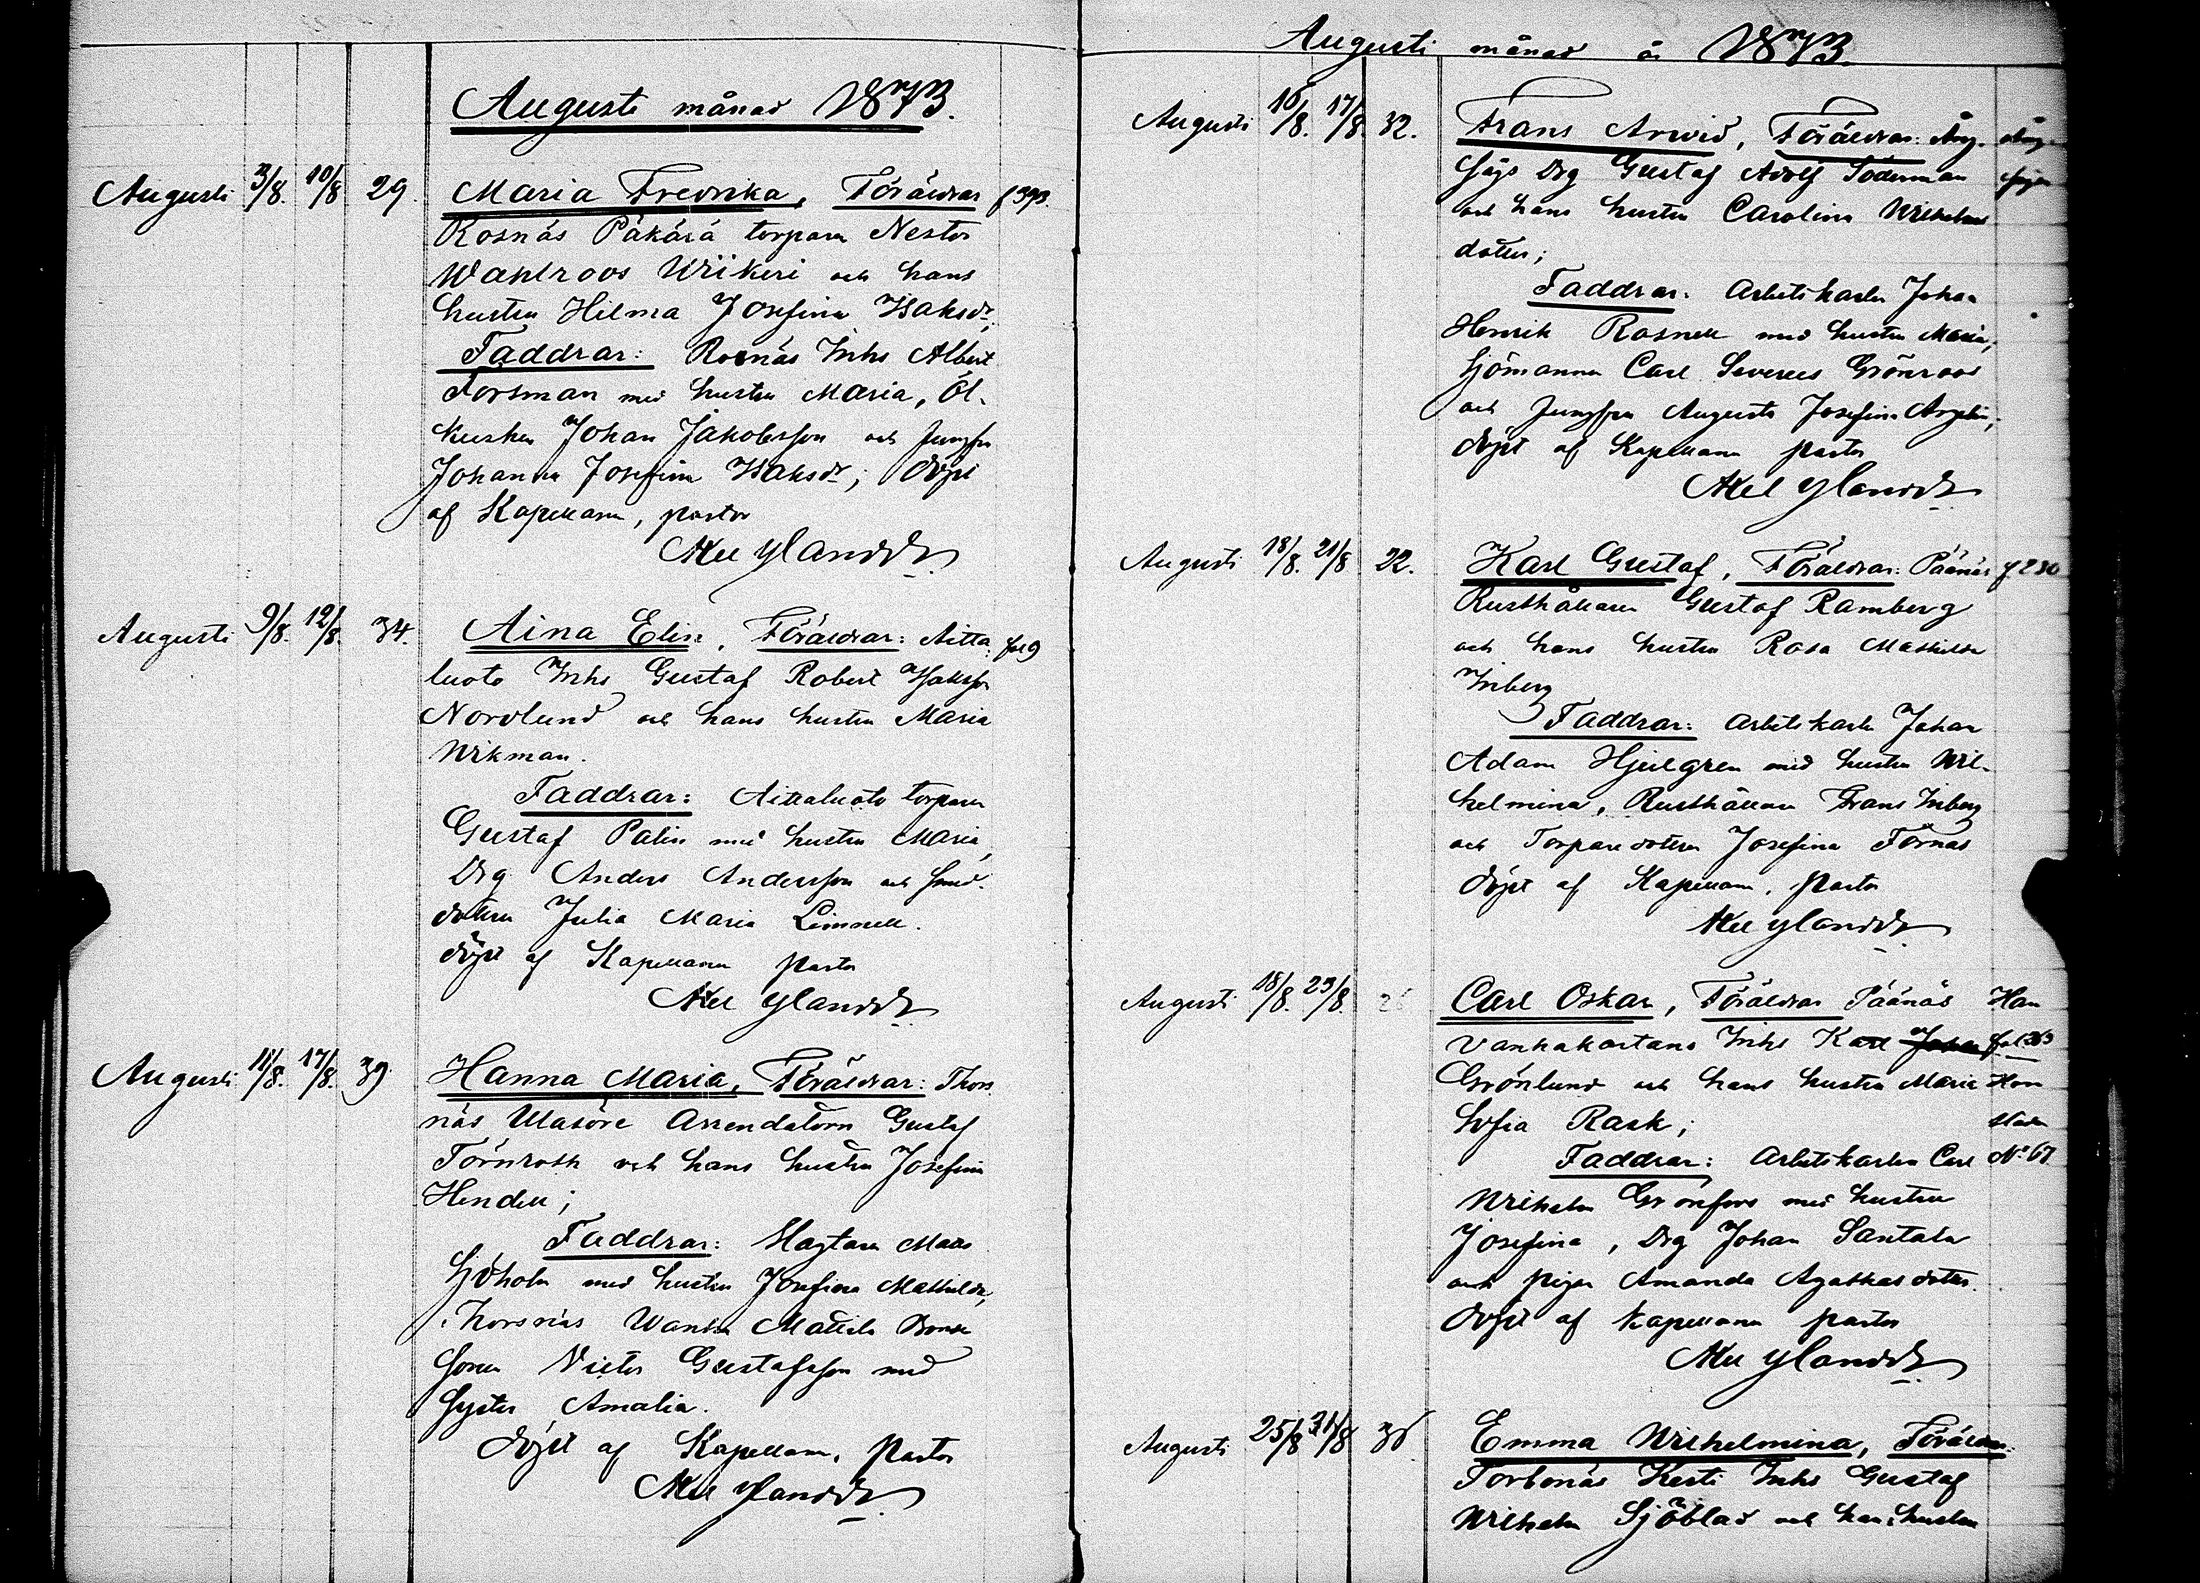 Augusti månad 1873.
Augusti 3/8. 10/8 29. Maria Fredrika, Föräldrar f 393.
Rosnäs Päkärä torparen Nestor
Wahlroos Wiikeri och hans
hustru Hilma Josefina Isaksdr,
Faddrar: Rosnäs Inhs Albert
Forsman med hustru Maria, öl-
kusken Johan Jakobsson och Jungfru
Johanna Josefina Isaksdr; döpt
af Kapellanen, pastor
Axel Ylander
Augusti 9/8. 12/8. 34. Aina Elise, Föräldrar: Aitta- fol 9
luoto Inhs Gustaf Robert Isaksson
Nordlund och hans hustru Maria
Wikman.
Faddrar: Aittaluoto torparen
Gustaf Palin med hustru Maria,
Drg Anders Andersson och smed-
dottern Julia Maria Limnell.
döpt af Kapellanen pastor
Axel Ylander
Augusti 11/8. 17/8. 39. Hanna Maria, Föräldrar: Thors-
näs Ulasöre Arrendatorn Gustaf
Törnroth och hans hustru Josefina
Hendell;
Faddrar: Magtaren Mats
Sjöholm med hustru Josefina Mathilda,
Thorsnäs Wanha Mattila Bonde
sonen Victor Gustafsson med
Syster Amalia.
döpt af Kapellanen, Pastor
Axel Ylander
Augusti månad år 1873.
Augusti 16/8. 17/8. 32. Frans Arwid, Föräldrar: Ång-
sågs Drg Gustaf Adolf Söderman
och hans hustru Carolina Wilhelms
dotter;
Faddrar: Arbetskarlen Johan
Henrik Rosnell med hustru Maria,
Sjömannen Carl Severus Grönroos
och Jungfrun Augusta Josefina
döpt af Kapellanen pastor
Axel Ylander
Augusti 18/8. 21/8 22. Karl Gustaf, Föräldrar: Päänäs f 230
Rusthållaren Gustaf Ramberg
och hans hustru Rosa Mathilda
Inberg
Faddrar: Arbetskarlen Johan
Adam Hjulgren med hustru Wil-
helmina, Rusthållaren Frans Inberg
och Torparedottern Josefina Törnäs
döpt af Kapellanen, Pastor
Axel Ylander
Augusti 18/8. 23/8. 26 Carl Oskar, Föräldrar Päänäs Han
Vanhakartano Inhs Karl Johan fol 363
Grönlund och hans hustru Maria Hon
Sofia Rask; staden
Faddrar: Arbetskarlen Carl No 67
Wilhelm Grönfors med hustru
Josefina, Drg Johan Santala
och pigan Amanda Agathasdotter.
döpt af kapellanen pastor
Axel Ylander
Augusti 25/8 31/8 36 Emma Wilhelmina, Föräldrar:
Torbonäs Kesti Inhs Gustaf
Wilhelm Sjöblad och hans hustru